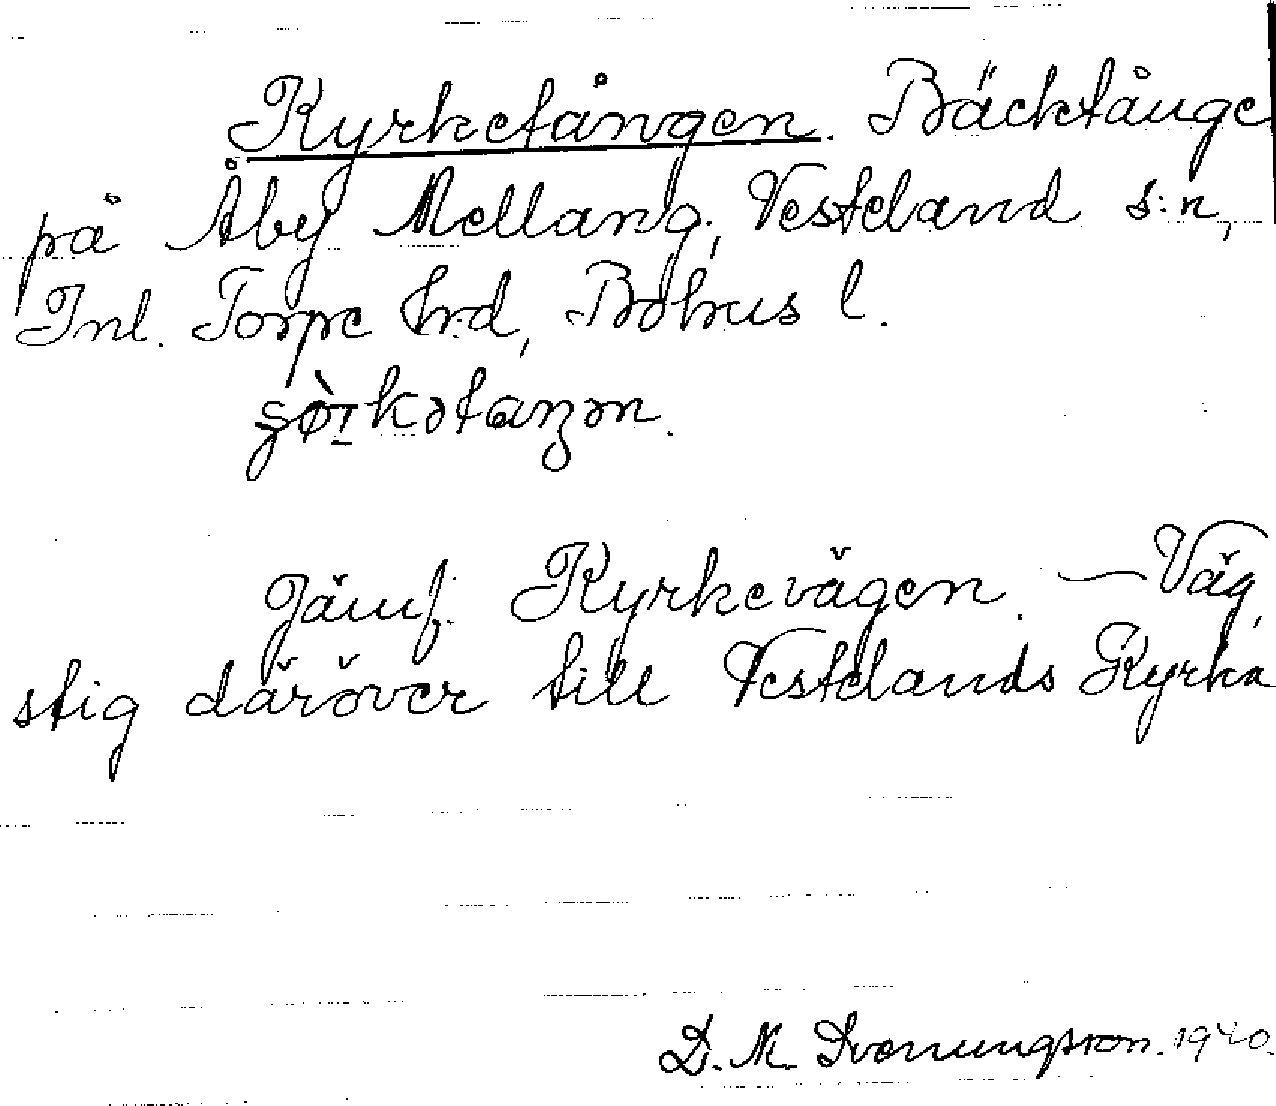 Kyrketången. Bäcktånge
på Åby Mellang, Vesteland s:n,
Inl. Torpe hrd, Bohus l.
Jämf. Kyrkevägen. — Väg,
stig däröver till Vestelands Kyrka
D. M. Svenungsson. 1940.